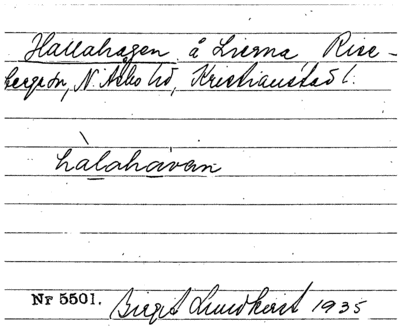 Hallahagen å Lierna Rise-
bergs sn, N. Åsbo hd, Kristianstads l.
hàlahávan
Nr 5501. Birgit Lundkvist 1935